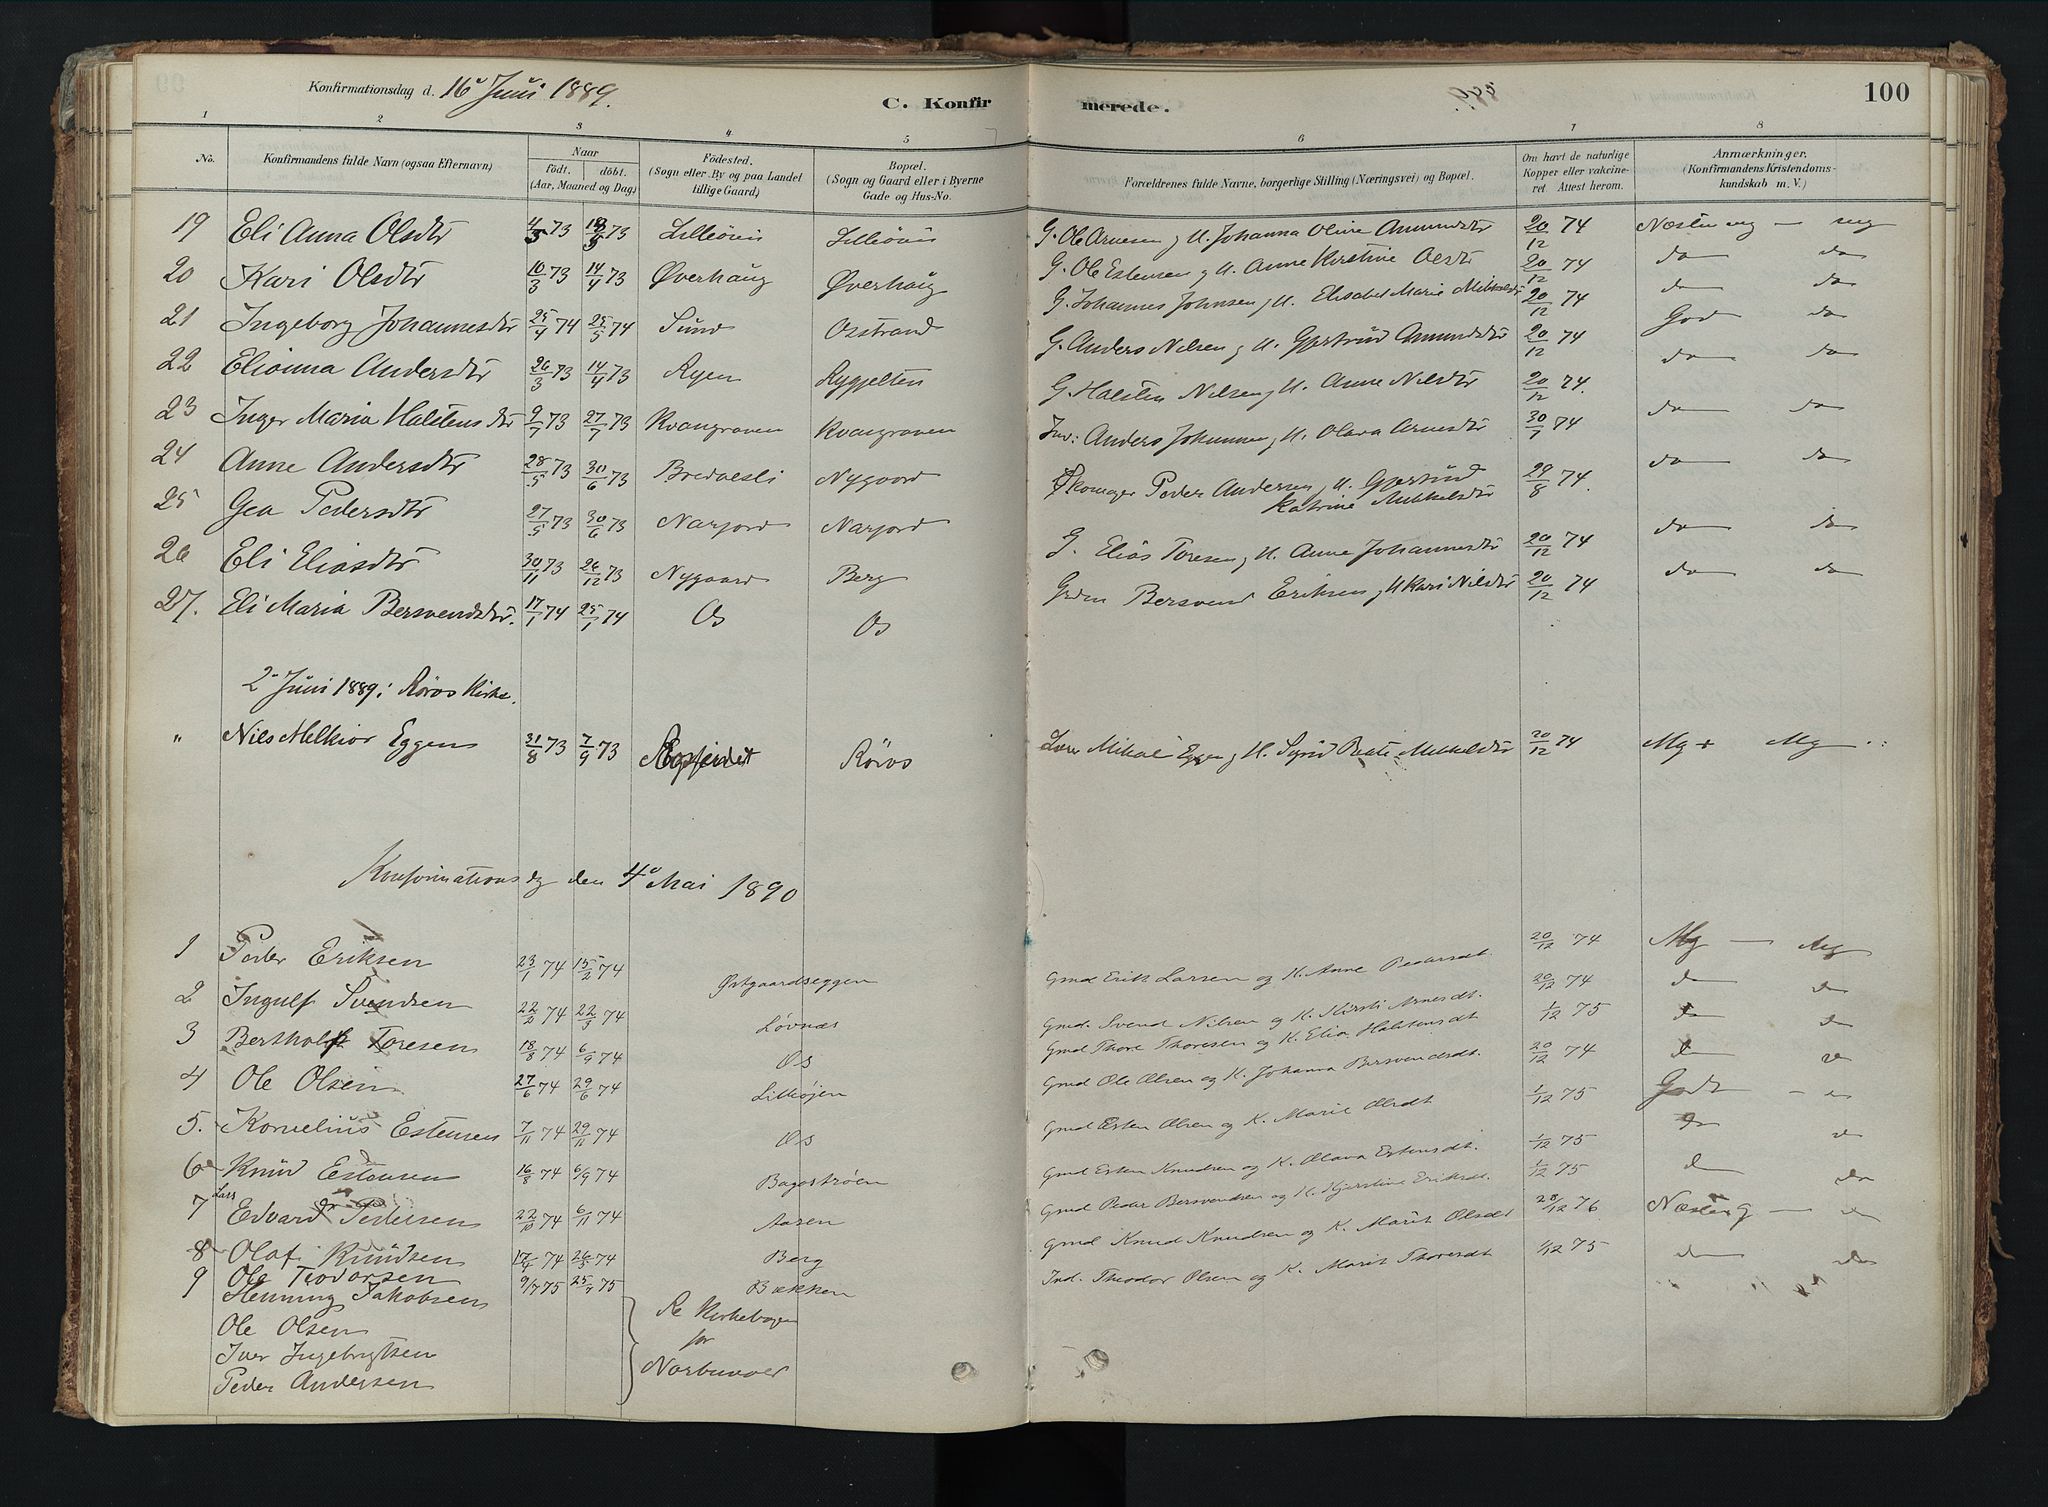 Konfirmationsdag d. 16 Juni 1889.
C. Konfirmerede.
100
1 2 3 4 5 6 7 8
No.
Konfirmandens fulde Navn (ogsaa Efternavn)
Naar
födt. döbt.
(Aar, Maaned og Dag)
Födested.
(Sogn eller By og paa Landet
tillige Gaard)
Bopæl.
(Sogn og Gaard eller i Byerne
Gade og Hus-No.
Forældrenes fulde Navne, borgerlige Stilling (Næringsvei) og Bopæl.
Om havt de naturlige
Kopper eller vakcine-
ret. Attest herom.
Anmærkninger.
(Konfirmandens Kristendoms-
kundskab m. V.)
19 Eli Anna Olsdtr 73 73 G. Ole Arnesen og H. Johanna Oline Amundsdtr 20/12 74
20 Kari Olsdtr 10/3 73 14/4 73 Øverhaug Øverhaug G. Ole Estensen og H. Anne Kirstine Olsdtr 20/12 74 do do
21 Ingeborg Johannesdtr 25/4 74 25/5 74 Sund Osstrand G. Johannes Johnsen og H. Elisabet Marie Mikkelsdtr 20/12 74 do do
22 Elianna Andersdtr 26/3 73 14/4 73 Ryen Rygjelten G. Anders Nilsen og H. Gjertrud Amundsdtr 20/12 74 God do
23 Inger Maria Halstensdtr 9/7 73 27/7 73 Kvangraven Kvangraven G. Halsten Nilsen og H. Anne Nilsdtr 20/12 74. do do
24 Anne Andersdtr 28/5 73 30/6 73 Bredvesli Nygaard Inv: Anders Johannesen og H. Olava Arnesdtr 30/7 74 do do
25 Gea Pedersdtr 27/5 73 30/6 73 Narjord Narjord Skomager Peder Andersen og H. Gjertrud 29/8 74. do do
Katrine Mikkelsdtr
26 Eli Eliasdtr 30/11 73 26/12 73 Nygaard Berg G. Elias Toresen og H. Anne Johannesdtr 20/12 74 do do
27. Eli Maria Bersvendsdtr. 17/1 74 25/1 74 Os Os Grdm Bersvend Eriksen og H Kari Nilsdtr 20/12 74 do do
2 Juni 1889 i Röros Kirke.
" Nils Melkior Eggen 31/8 73 7/9 73 Röros Mikal Eggen og H. Beate Mikkelsdtr 20/12 74 Mg + Mg
Konfirmationsdg den 4 Mai 1890
1 Peder Eriksen 23/1 74 15/2 74 Østgaardseggen Gmd Erik Larsen og K. Anne Pedersdt. 20/12 74 Mg — Mg
2 Ingulf Svendsen 22/2 74 22/3 74 Løvnæs Gmd. Svend Nilsen og K. Kirsti Arnesdt. 20/12 74 do do
3 Bertholf Toresen 18/8 74 6/9 74 Os Gmd Thore Thoresen og K. Elia Halstensdt 1/12 75
4 Ole Olsen 27/6 74 29/6 74 Lilleøjen Gmd Ole Olsen og K. Johanna Bersvendsdt. 20/12 74
5. Kornelius Estensen 7/11 74 29/11 74 Os Gmd Esten Olsen og K. Marie Olsdt 1/12 75 Godt
6 Knud Estensen 16/8 74 6/9 74 Bagerstrøen Gmd Esten Knudsen og K. Olava Estensdt. 1/12 75
7 Lars Edvard Pedersen 22/10 74 6/11 74 Aasen Gmd Peder Bersvendsen og K. Kjerstine Eriksdt. 1/12 75
8 Olaf Knudsen 17/4 74 26/5 74 Berg Gmd Knud Knudsen og K. Marit Olsdt 28/12 76
9 Ole Teodorsen 9/7 75 25/7 75 Bækken Ind. Theodor Olsen og K. Marit Thoresdt 1/12 75
Henning Jakobsen
Ole Olsen
Iver Ingebrigtsen
Peder Andersen
Se Kirkebogen
for
Narbuvoll